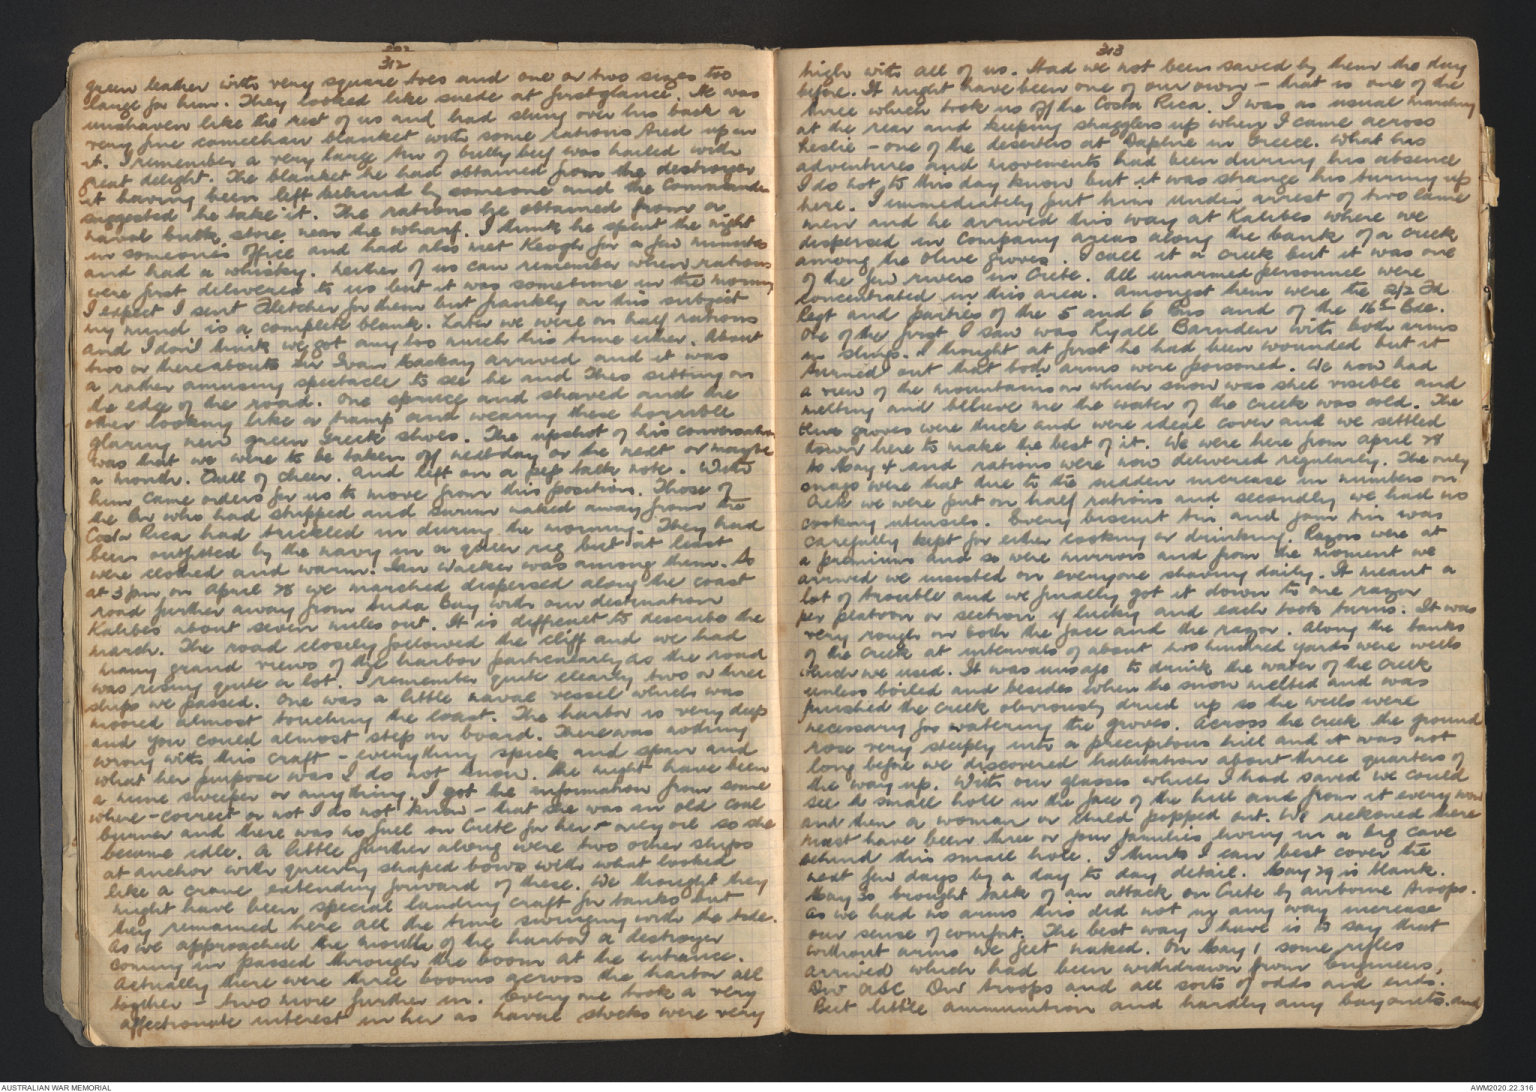 312
green leather with very square toes and one or two sizes too
large for him. They looked like suede at first glance. He was
unshaven like the rest of us and had slung over his back a
very fine camelhair blanket with some rations tied up in
it. I remember a very large tin of bully beef was hailed with
great delight. The blanket he had obtained from the destroyer
it having been left behind by someone and the Commander
suggested he take it. The rations he obtained from a
naval bulk store near the wharf. I think he spent the night
in someone's office and had also met Keogh for a few minutes
and had a whisky. Neither of us can remember when rations
were first delivered to us but it was sometime in the morning
I expect I sent Fletcher for them but frankly on this subject
my mind is a complete blank. Later we were on half rations
and I don't think we got any too much this time either. About
two or thereabouts Sir Ivan Mackay arrived and it was
a rather amusing spectacle to see he and Theo sitting on
the edge of the road. One spruce and shaved and the
other looking like a tramp and wearing these horrible
glaring new green Greek shoes. The upshot of his conversation
was that we were to be taken off next day or the next or maybe
a month. Full of cheer. And left on a pep talk note. With
him came orders for us to move from this position. Those of
the Bn who had stripped and swum naked away from the
Costa Rica had trickled in during the morning. They had
been outfitted by the navy in a queer rig but at least
were clothed and warm. Ian Walker was among them. So
at 3 pm on April 28 we marched dispersed along the coast
road further away from Suda Bay with our destination
Kalibes about seven miles out. It is difficult to describe the
march. The road closely followed the cliff and we had
many grand views of the harbor particularly as the road
was rising quite a lot. I remember quite clearly two or three
ships we passed. One was a little naval vessel which was
moored almost touching the coast. The harbor is very deep
and you could almost step on board. There was nothing
wrong with this craft - everything spick and span and
what her purpose was I do not know. She might have been
a mine sweeper or anything. I got the information from some
where - correct or not I do not know - that she was an old coal
burner and there was no fuel on Crete for her - only oil so she
became idle. A little further along were two other ships
at anchor with queerly shaped bows with what looked
like a crane extending forward of these. We thought they
might have been special landing craft for tanks but
they remained here all the time swinging with the tide.
As we approached the mouth of the harbor a destroyer
coming in passed through the boom at the entrance.
Actually there were three booms across the harbor all
together - two more further in. Every one took a very
affectionate interest in her as naval stocks were very
313
high with all of us. Had we not been saved by them the day
before. It might have been one of our own - that is one of the
three which took us off the Costa Rica. I was as usual marching
at the rear and keeping stragglers up when I came across
Leslie - one of the deserters at Daphne in Greece. What his
adventures and movements had been during his absence
I do not to this day know but it was strange his turning up
here. I immediately put him under arrest of two
men and he arrived this way at Kalibes where we
dispersed in Company areas along the bank of a creek
among the olive groves. I call it a creek but it was one
of the few rivers in Crete. All unarmed personnel were
concentrated in this area. Amongst them were the 2/2 Fd
Regt and parties of the 5 and 6 Bns and of the 16th Bde.
One of the first I saw was Ryall Barnden with both arms
in slings. I thought at first he had been wounded but it
turned out that both arms were poisoned. We now had
a view of the mountains on which snow was still visible and
melting and believe me the water of the creek was cold. The
olive groves were thick and were ideal cover and we settled
down here to make the best of it. We were here from April 28
to May 4 and rations were now delivered regularly. The only
snags were that due to the sudden increase in numbers on
Crete we were put on half rations and secondly we had no
cooking utensils. Every biscuit tin and jam tin was
carefully kept for either cooking or drinking. Razors were at
a premium and so were mirrors and from the moment we
arrived we insisted on everyone shaving daily. It meant a
lot of trouble and we finally got it down to one razor
per platoon or section if lucky and each took turns. It was
very rough on both the face and the razor. Along the banks
of the creek at intervals of about two hundred yards were wells
which we used. It was unsafe to drink the water of the creek
unless boiled and besides when the snow melted and was
finished the creek obviously dried up so the wells were
necessary for watering the groves. Across the creek the ground
rose very steeply into a precipitous hill and it was not
long before we discovered habitation about three quarters of
the way up. With our glasses which I had saved we could
see the small hole in the face of the hill and from it every now
and then a woman or child popped out. We reckoned there
must have been three or four families living in a big cave
behind this small hole. I think I can best cover the
next few days by a day to day detail. May 29 is blank.
May 30 brought talk of an attack on Crete by airborne troops.
As we had no arms this did not in any way increase
our sense of comfort. The best way I have is to say that
without arms we felt naked. On May 1 some rifles
arrived which had been withdrawn from Engineers,
Div ASC Div troops and all sorts of odds and ends.
But little ammunition and hardly any bayonets and
AUSTRALIAN WAR MEMORIAL
AWM2020.22.316